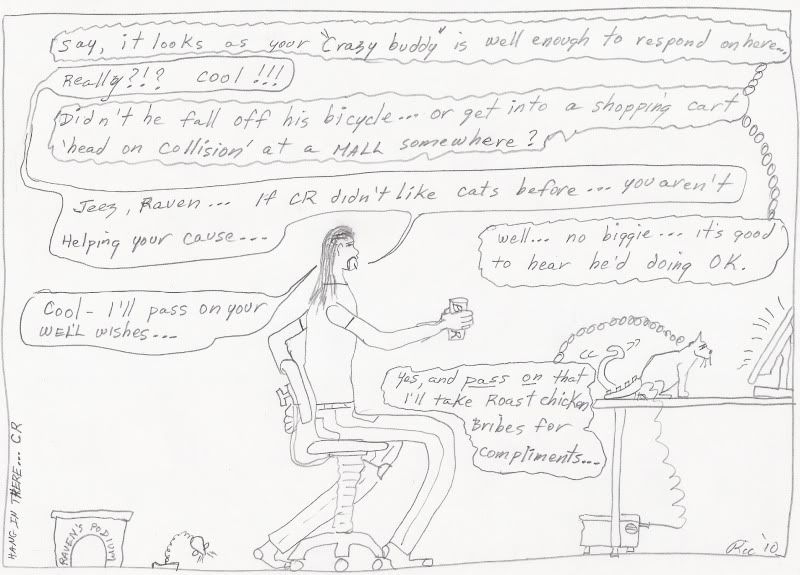 Say, it looks as your "Crazy buddy" is well enough to respond on here...
Really?!? Cool!!!
Didn't he fall off his bicycle... or get into a shopping cart
'head on collision' at a MALL somewhere?
Jeez, Raven... If CR didn't like cats before... you aren't
Helping your cause...
Well... no biggie... it's good
to hear he'd doing OK.
Cool - I'll pass on your
WELL wishes...
Yes, and pass on that
I'll take Roast chicken
Bribes for
compliments...
HANG IN THERE... CR
RAVEN'S PODIUM
Ric '10